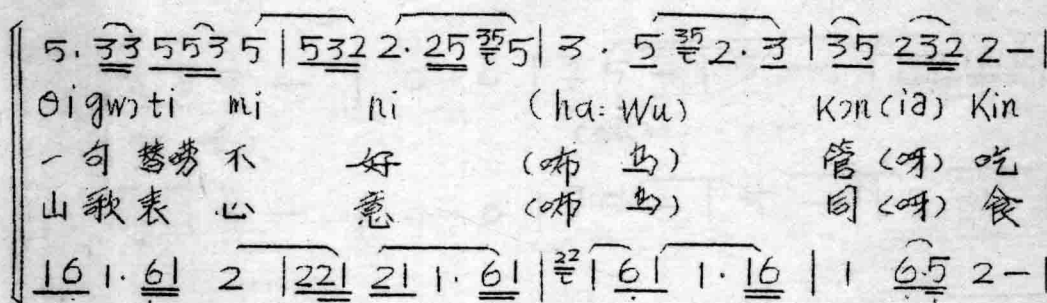 5. 33 553 5 | 532 2. 25 35 5 | 3. 5 35 2. 3 | 35 232 2 — |
θi gwɔ ti mi ni (ha: wu) Kɔn (ia) Kin
一句 唠不 好 (咘 乌) 管 (呀) 吃
山歌表心 意 (咘 乌) 同 (呀) 食
16 1. 61 2 | 221 21 1. 61 | 22 1 61 1. 16 | 1 6.5 2 — |